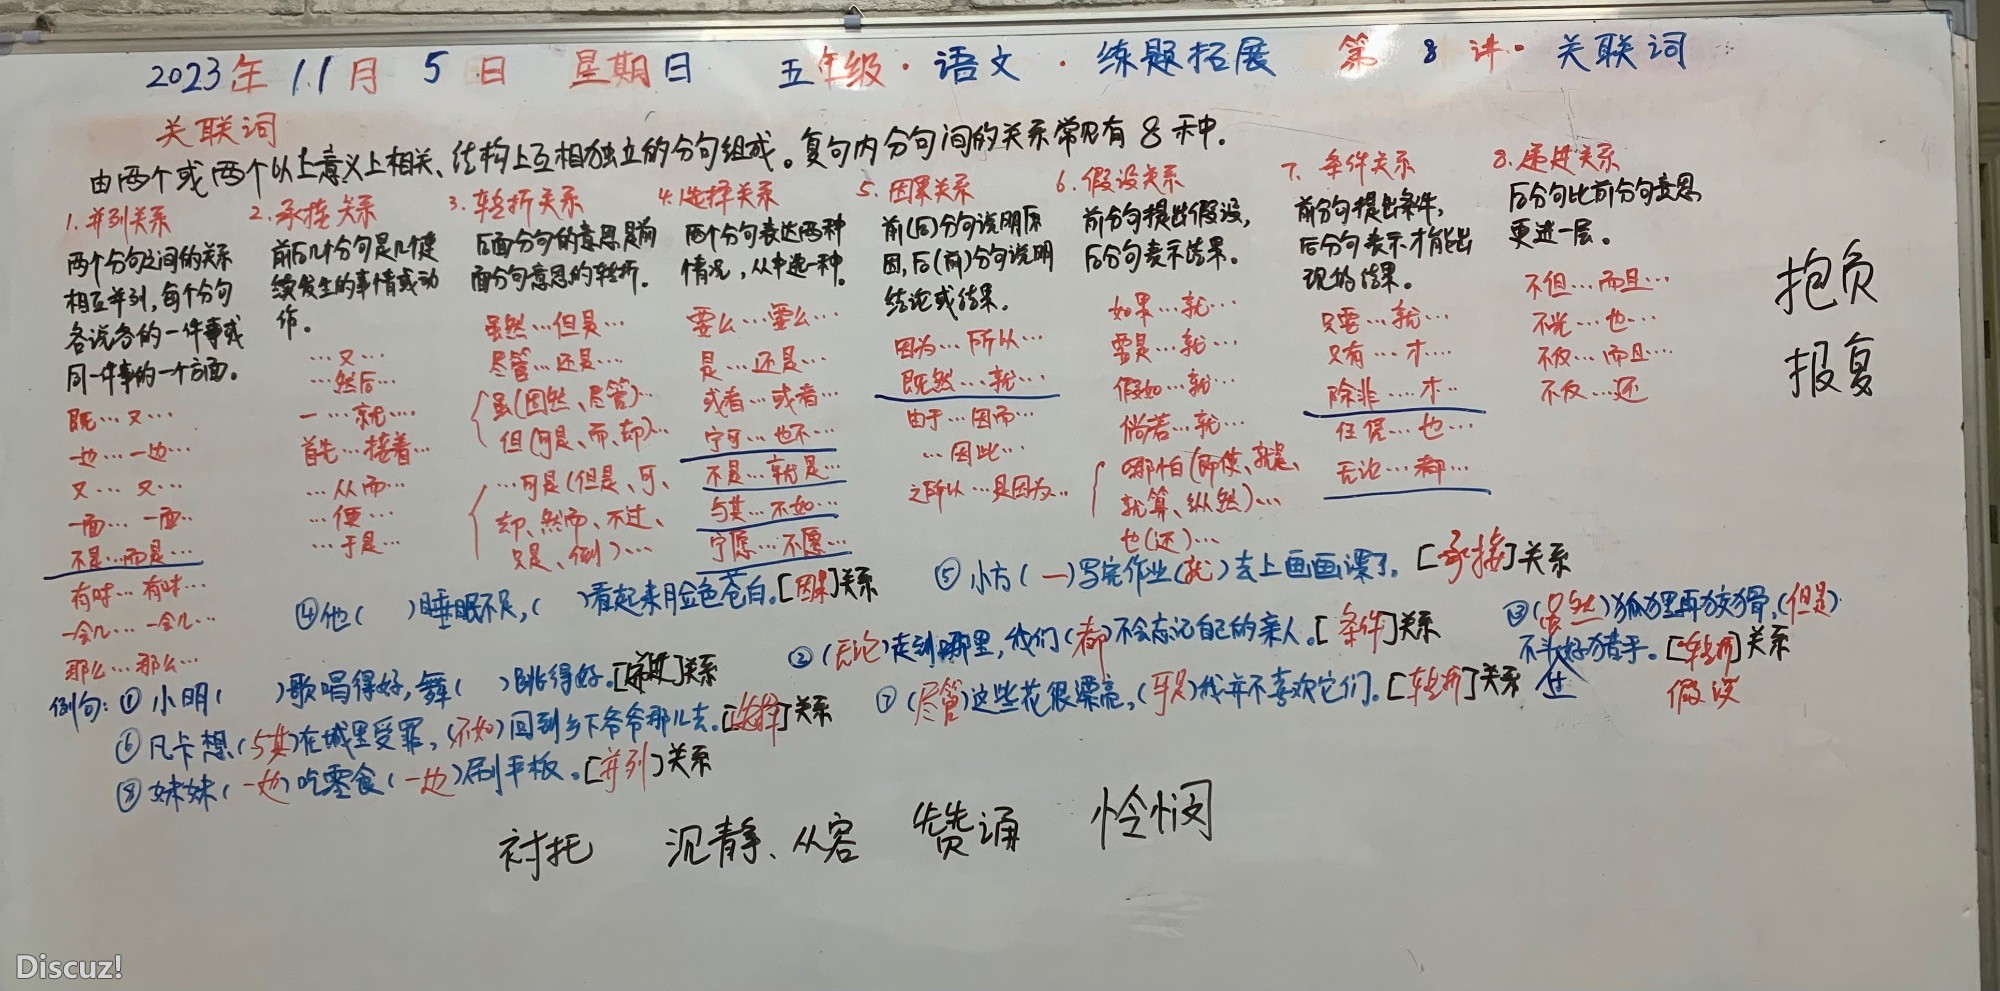 2023年11月5日 星期日 五年级·语文·练题拓展 第8讲·关联词
关联词
由两个或两个以上意义上相关、结构上互相独立的分句组成。复句内分句间的关系常见有8种.
1.并列关系
两个分句之间的关系
相互并列，每个分句
各说各的一件事或
同一件事的一个方面。
既…又…
一边…一边…
又…又…
一面…一面…
不是…而是…
有时…有时…
一会儿…一会儿…
那么…那么…
2.承接关系
前后几个分句是几个连
续发生的事情或动
作。
…又…
…然后…
一…就…
首先…接着…
…从而…
…便…
…于是…
3.转折关系
后面分句的意思是前
面分句意思的转折.
虽然…但是…
尽管…还是…
虽(固然、尽管)…
但(可是、而、却)…
…可是(但是、可、
却、然而、不过、
只是、倒)…
4.选择关系
两个分句表达两种
情况，从中选一种.
要么…要么…
是…还是…
或者…或者…
宁可…也不…
不是…就是…
与其…不如…
宁愿…不愿…
5.因果关系
前(后)分句说明原
因,后(前)分句说明
结论或结果.
因为…所以…
既然…就…
由于…因而…
…因此…
之所以…是因为…
6.假设关系
前分句提出假设,
后分句表示结果.
如果…就…
要是…就…
假如…就…
倘若…就…
哪怕(即使、就是、
就算、纵然)…
也(还)…
7.条件关系
前分句提出条件,
后分句表示才能出
现的结果.
只要…就…
只有…才…
除非…才…
任凭…也…
无论…都…
8.递进关系
后分句比前分句意思
更进一层。
不但…而且…
不光…也…
不仅…而且…
不仅…还
抱负
报复
④他( )睡眠不足,( )看起来脸色苍白.[因果]关系
⑤小方(一)写完作业(就)去上画画课了.[承接]关系
例句:①小明( )歌唱得好,舞( )跳得好.[递进]关系
②(无论)走到哪里,我们(都)不会忘记自己的亲人.[条件]关系
③(虽然)狐狸再狡猾,(但是)
不斗好猎手。[转折]关系
过
假设
⑥凡卡想,(与其)在城里受罪,(不如)回到乡下爷爷那儿去.[选择]关系
⑦(尽管)这些花很漂亮,(可是)我并不喜欢它们.[转折]关系
⑧妹妹(一边)吃零食(一边)刷平板.[并列]关系
衬托 沉静、从容 赞诵 怜悯
Discuz!